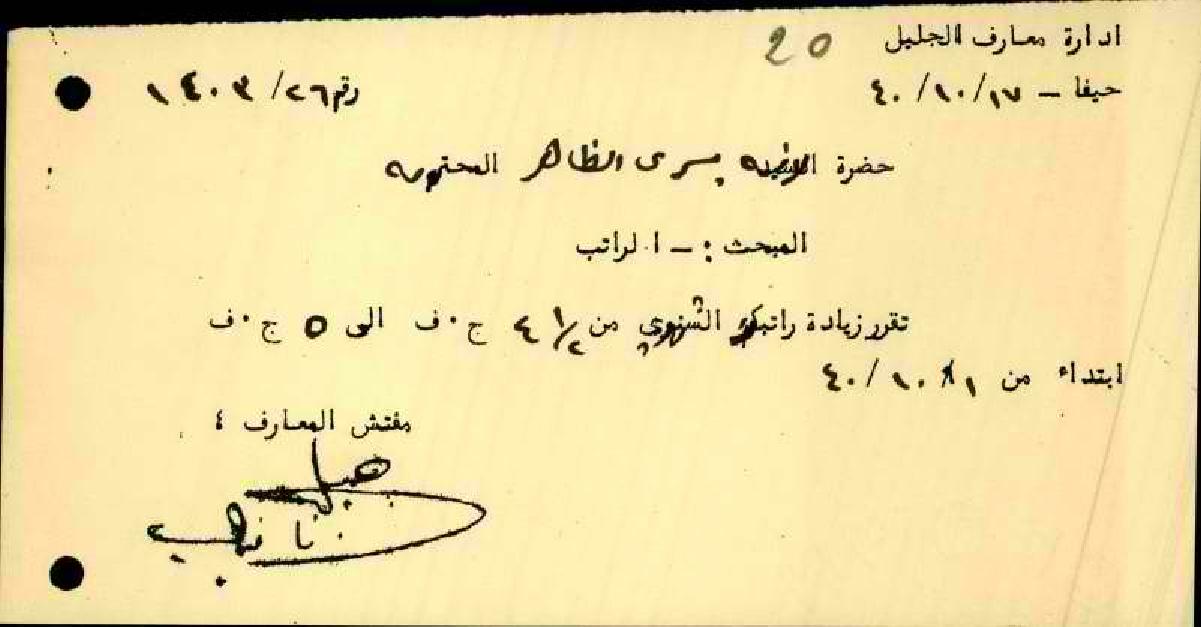 ادارة معارف الجليل 20
حيفا — ١٧/١٠/٤٠ رقم ٢٦/١٤٠٣
حضرة الانسه يسرى الظاهر المحترمه
المبحث : — الراتب
تقرر زيادة راتبك الشهري من ٤ ١/٢ ج٠ف الى ٥ ج٠ف
ابتداء من ١/١٠/٤٠
مفتش المعارف ٤